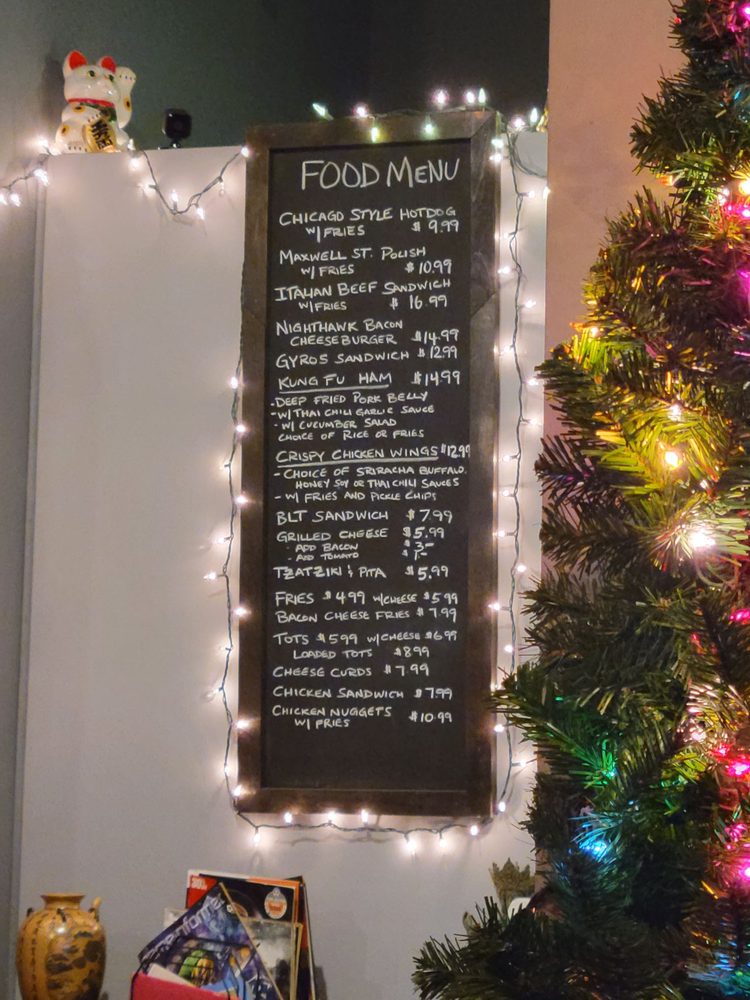 FOOD MENU
CHICAGO STYLE HOTDOG
W/ FRIES $ 9.99
MAXWELL ST. POLISH
W/ FRIES $10.99
ITALIAN BEEF SANDWICH
W/ FRIES $ 16.99
NIGHTHAWK BACON
CHEESEBURGER $14.99
GYROS SANDWICH $12.99
KUNG FU HAM $14.99
-DEEP FRIED PORK BELLY
-W/ THAI CHILI GARLIC SAUCE
- W/ CUCUMBER SALAD
CHOICE OF RICE OR FRIES
CRISPY CHICKEN WINGS $12.99
- CHOICE OF SRIRACHA BUFFALO,
HONEY SOY OR THAI CHILI SAUCES
- W/ FRIES AND PICKLE CHIPS
BLT SANDWICH $7.99
GRILLED CHEESE $5.99
- ADD BACON $3-
- ADD TOMATO $1-
TZATZIKI & PITA $5.99
FRIES $4.99 W/CHEESE $5.99
BACON CHEESE FRIES $7.99
TOTS $5.99 W/CHEESE $6.99
LOADED TOTS $8.99
CHEESE CURDS $7.99
CHICKEN SANDWICH $7.99
CHICKEN NUGGETS $10.99
W/ FRIES